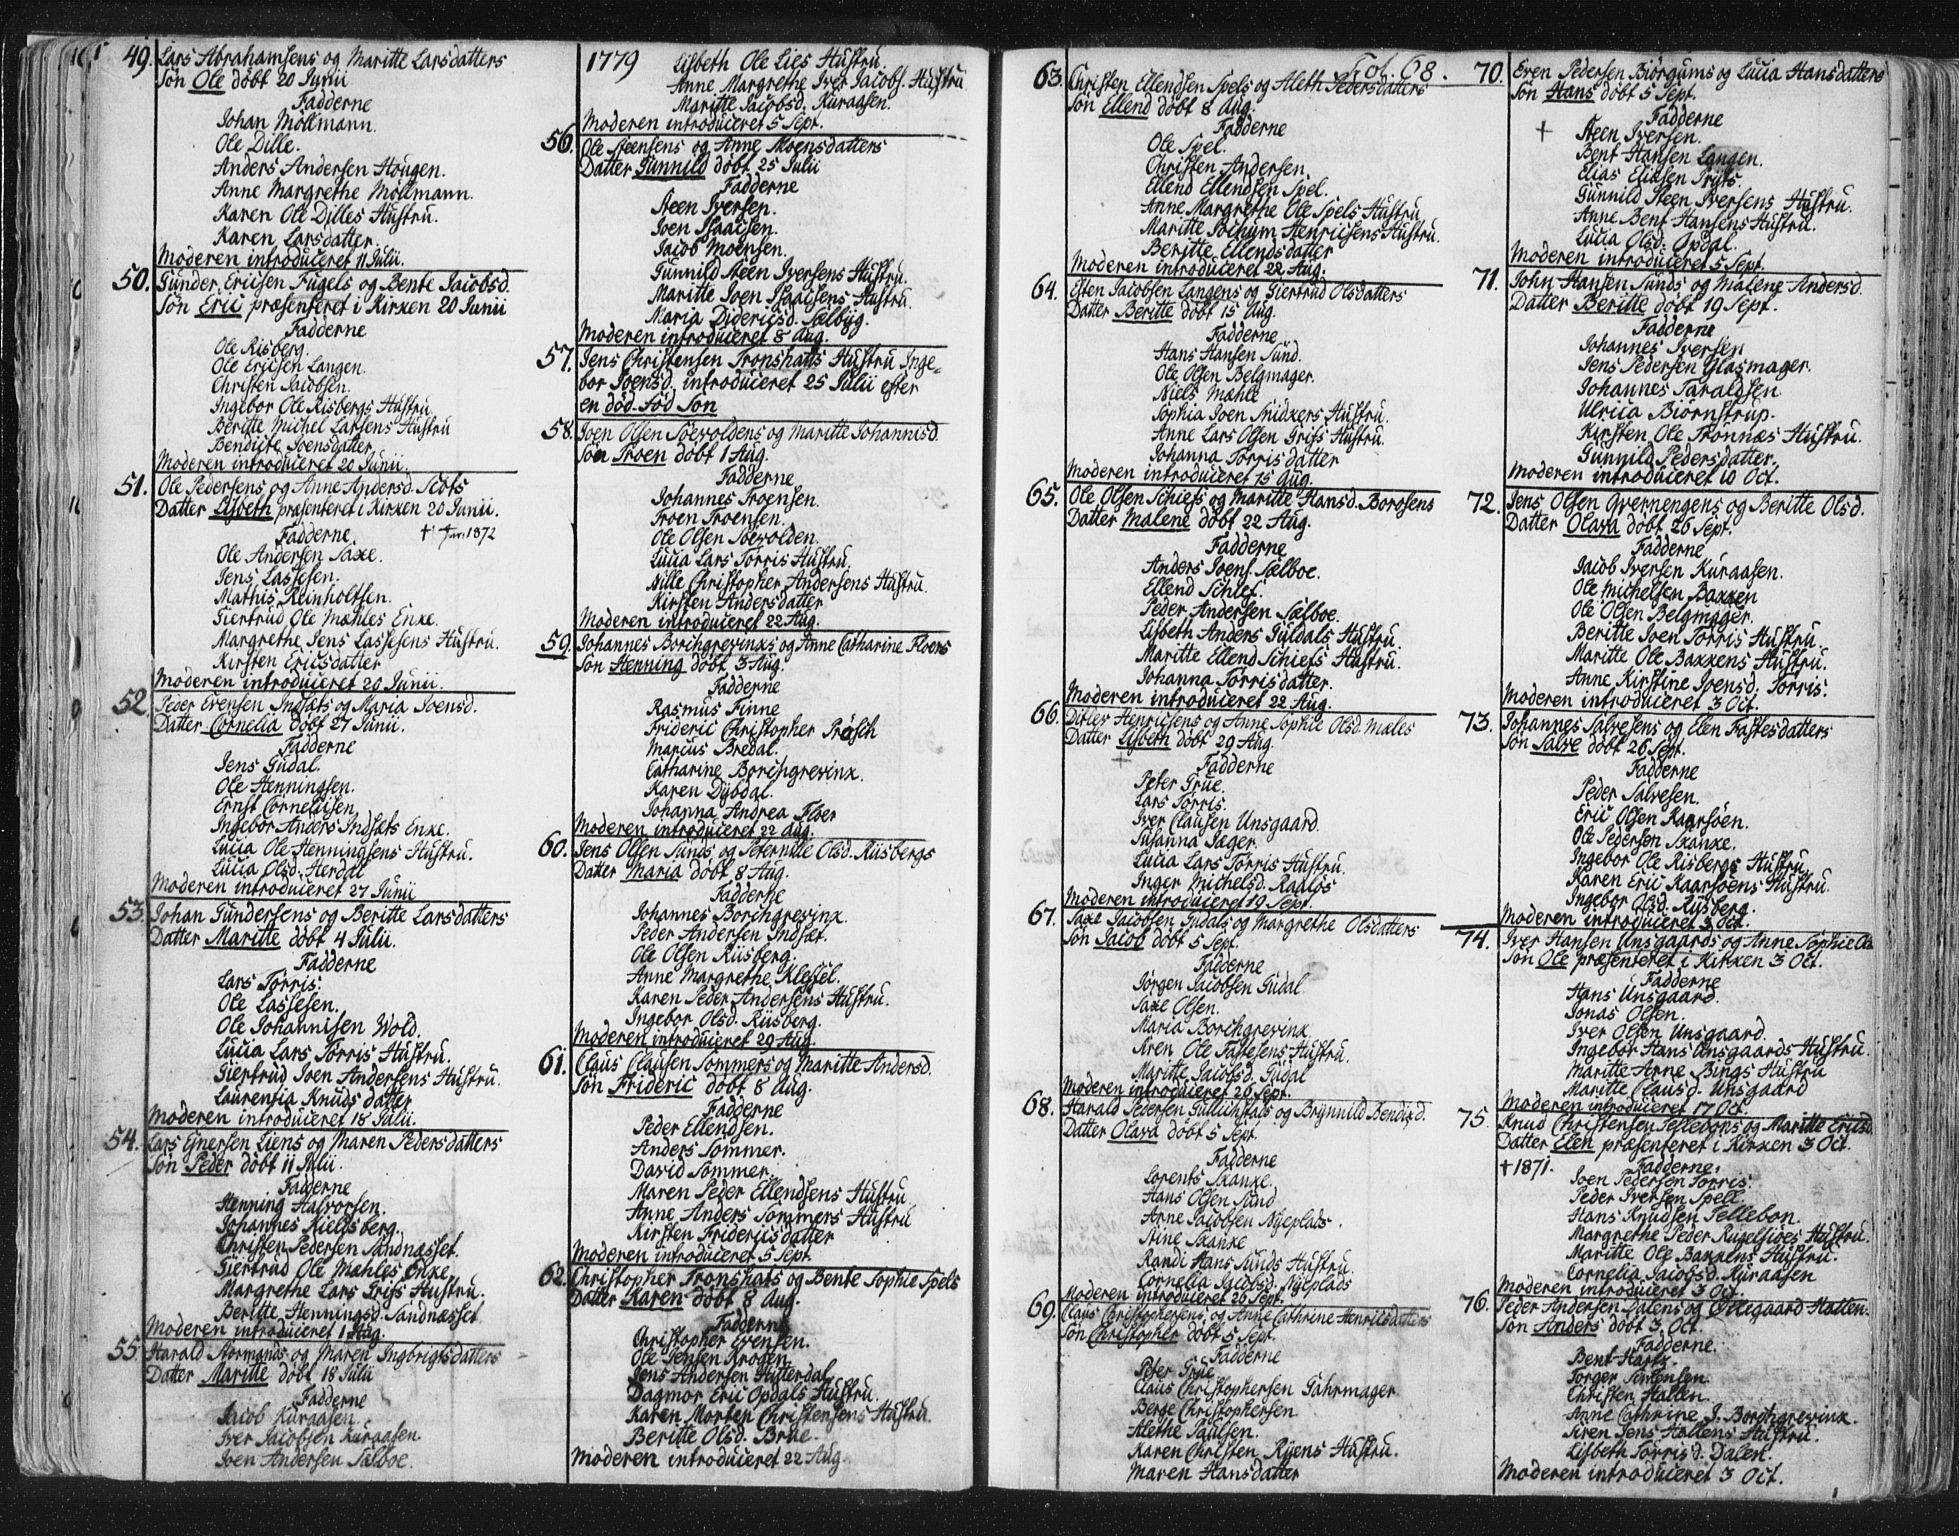 49. Lars Abrahamsens og Maritte Larsdatters
Søn Ole døbt 20 Junii
Fadderne
Johan Möllmann.
Ole Dille.
Anders Andersen Hougen.
Anne Margrethe Möllmann.
Karen Ole Dilles Hustru.
Karen Larsdatter.
Moderen introduceret 11 Julii.
50. Gunder Ericsen Fugels og Bente Jacobsd.
Søn Eric præsenteret i Kirken 20 Junii
Fadderne
Ole Risberg.
Ole Ericsen Langen.
Christen Jacobsen.
Ingebor Ole Risbergs Hustru
Beritte Michel Larsens Hustru
Bendicte Joensdatter
Moderen introduceret 20 Junii.
51. Ole Pedersens og Anne Andersd. Scots
Datter Lisbeth præsenteret i Kirken 20 Junii.
Fadderne † Jan 1872
Ole Andersen Saxe.
Jens Lassesen.
Mathis Reinholtsen.
Giertrud Ole Mæhles Enke.
Margrethe Jens Lassesens Hustru.
Kirsten Ericsdatter
Moderen introduceret 20 Junii.
52. Peder Evensen Indsæts og Maria Joensd.
Datter Cornelia døbt 27 Junii.
Fadderne
Jens Gudal.
Ole Henningsen.
Ernst Cornelisen
Ingebor Anders Indsæts Enke.
Lucia Ole Henningsens Hustru.
Lucia Olsd. Herdal
Moderen introduceret 27 Junii
53. Johan Gundersens og Beritte Larsdatters
Datter Maritte døbt 4 Julii.
Fadderne
Lars Torris.
Ole Lassesen.
Ole Johannisen Wold.
Lucia Lars Torris Hustru.
Giertrud Joen Andersens Hustru.
Laurentia Knuds datter
Moderen introduceret 18 Julii.
54. Lars Enersen Liens og Maren Pedersdatters
Søn Peder døbt 11 Julii.
Fadderne
Henning Halvorsen.
Johannes Kieldsberg.
Christen Pedersen Sandnæsset.
Giertrud Ole Mæhles Enke
Margrethe Lars Friss Hustru.
Beritte Henningsd. Sandnæsset
Moderen introduceret 1 Aug.
55. Harald Normands og Maren Ingbrigtsdatters
Datter Maritte døbt 18 Julii
Fadderne
Jacob Kuraasen.
Iver Jacobsen Kuraasen.
Joen Andersen Sælboe.
1779 Lisbeth Ole Lies Hustru.
Anne Margrethe Iver Jacobs. Hustru
Maritte Jacobsd. Kuraasen.
Moderen introduceret 5 Sept.
56. Ole Steensens og Anne Moensdatters
Datter Gunnild døbt 25 Julii
Fadderne
Steen Iversen.
Joen Isaacsen.
Jacob Moensen.
Gunnild Steen Iversens Hustru.
Maritte Joen Isaacsens Hustru.
Maria Didericsd. Sælbyg.
Moderen introduceret 8 Aug.
57. Jens Christensen Tronshatts Hustru Inge-
bor Joensd. introduceret 25 Julii efter
en død-fød Søn
58. Joen Olsen Soevoldens og Maritte Johannisd.
Søn Troen døbt 1 Aug.
Fadderne
Johannes Troensen.
Troen Troensen.
Ole Olsen Soevolden.
Lucia Lars Torris Hustru.
Nille Christopher Andersens Hustru.
Kirsten Andersdatter
Moderen introduceret 22 Aug.
59. Johannes Borchgrevinks og Anne Catharine Floers
Søn Henning døbt 3 Aug.
Fadderne
Rasmus Finne
Frideric Christopher Prösch
Marcus Bredal.
Catharine Borchgrevink.
Karen Dybdal.
Johanna Andrea Floer
Moderen introduceret 22 Aug.
60. Jens Olsen Sunds og Peternille Olsd. Riisbergs
Datter Maria døbt 8 Aug.
Fadderne
Johannes Borchgrevink.
Peder Andersen Indsæt.
Ole Olsen Riisberg.
Anne Margrethe Klefsel.
Karen Peder Andersens Hustru.
Ingebor Olsd. Riisberg.
Moderen introduceret 29 Aug.
61. Claus Clausen Sommers og Maritte Andersd.
Søn Frideric døbt 8 Aug.
Fadderne
Peder Ellendsen.
Anders Sommer.
David Sommer.
Maren Peder Ellendsens Hustru
Anne Anders Sommers Hustru
Kirsten Fridericsdatter
Moderen introduceret 5 Sept.
62. Christopher Tronshats og Bente Sophie Spels
Datter Karen døbt 8 Aug.
Fadderne
Christopher Evensen.
Ole Jensen Krogen.
Jens Andersen Hitterdal
Dagmor Eric Opdals Hustru.
Karen Morten Christensens Hustru.
Beritte Olsd. Brue.
Moderen introduceret 22 Aug.
Fol. 68.
63. Christen Ellendsen Spels og Aleth Pedersdatters
Søn Ellend døbt 8 Aug.
Fadderne
Ole Spel.
Christen Andersen.
Ellend Ellendsen Spel.
Anne Margrethe Ole Spels Hustru
Maritte Jochum Henricsens Hustru.
Beritte Ellendsdatter
Moderen introduceret 22 Aug.
64. Esten Jacobsen Langens og Giertrud Olsdatters
Datter Beritte døbt 15 Aug.
Fadderne
Hans Hansen Sund.
Ole Olsen Belgmager.
Niels Mæhle
Sophia Joen Snidkers Hustru.
Anne Lars Olsen Friss Hustru.
Johanna Torris datter
Moderen introduceret 15 Aug.
65. Ole Olsen Schiefs og Maritte Hansd. Borosens
Datter Malene døbt 22 Aug.
Fadderne
Anders Joens. Sælboe.
Ellend Schief.
Peder Andersen Sælboe.
Lisbeth Anders Guldals Hustru.
Maritte Ellend Schiefs Hustru.
Johanna Torrisdatter.
Moderen introduceret 22 Aug.
66. Ditlef Henricsens og Anne Sophie Olsd. Mæles
Datter Lisbeth døbt 29 Aug.
† Fadderne
Peter Grue.
Lars Torris.
Iver Clausen Unsgaard.
Susanna Jager.
Lucia Lars Torris Hustru.
Inger Michelsd. Raaløs
Moderen introduceret 19 Sept.
67. Saxe Jacobsen Gudals og Margrethe Olsdatters
Søn Jacob døbt 5 Sept.
Fadderne
Jørgen Jacobsen Gudal
Saxe Olsen.
Maria Borchgrevink
Siren Ole Fastesens Hustru.
Maritte Jacobsd. Gudal
Moderen introduceret 26 Sept.
68. Harald Pedersen Gullichstads og Brynnild Bendixd.
Datter Olava døbt 5 Sept.
Fadderne
Lorents Skanke.
Hans Olsen Sund
Arne Jacobsen Nyeplads.
Stine Skanke
Randi Hans Sunds Hustru.
Cornelia Jacobsd. Nyeplads
Moderen introduceret 26 Sept.
69. Claus Christophersens og Anne Cathrine Henricsdatters
Søn Christopher døbt 5 Sept.
Fadderne
Peter Grue
Claus Christophersen Fahrmager
Berge Christophersen
Alethe Paulsen.
Karen Christen Ryens Hustru.
Maren Hansdatter
70. Even Pedersen Biørgums og Lucia Hansdatters
Søn Hans døbt 5 Sept.
Fadderne
† Steen Iversen.
Bent Hansen Langen.
Elias Eliesen Tryts.
Gunnild Steen Iversens Hustru.
Anne Bent Hansens Hustru.
Lucia Olsd. Opdal.
Moderen introduceret 5 Sept.
71. John Hansen Sunds og Malene Andersd.
Datter Beritte døbt 19 Sept.
Fadderne
Johannes Iversen
Jens Pedersen Glasmager.
Johannes Taraldsen
Ulrica Biørnstrup.
Kirsten Ole Trønnæs Hustru.
Gunnild Pedersdatter.
Moderen introduceret 10 Oct.
72. Jens Olsen Qvernengens og Beritte Olsd.
Datter Olava døbt 26 Sept.
Fadderne
Jacob Iversen Kuraasen.
Ole Michelsen Bakken
Ole Olsen Belgmager.
Beritte Joen Torris Hustru.
Maritte Ole Bakkens Hustru.
Anne Kirstine Joensd. Torris.
Moderen introduceret 3 Oct.
73. Johannes Salvesens og Elen Fastesdatters
Søn Salve døbt 26 Sept.
Fadderne
Peder Salvesen.
Eric Olsen Kaarsöen.
Ole Pedersen Skanke.
Ingebor Ole Risbergs Hustru
Karen Eric Kaarsöens Hustru.
Ingebor Olsd. Riisberg.
Moderen introduceret 3 Oct.
74. Iver Hansen Unsgaards og Anne Sophie
Søn Ole præsenteret i Kirken 3 Oct.
Fadderne
Hans Unsgaard.
Jonas Olsen.
Iver Olsen Unsgaard.
Ingebor Hans Unsgaards Hustru.
Maritte Arne Bings Hustru
Maritte Clausd. Unsgaard
Moderen introduceret 17 Oct.
75. Knud Christensen Tellebons og Maritte Ericsd.
Datter Elen præsenteret i Kirken 3 Oct.
† 1871. Fadderne.
Joen Pedersen Torris.
Peder Iversen Spell
Hans Knudsen Tellebon.
Margrethe Peder Kugelsiöes Hustru.
Maritte Ole Bakkens Hustru.
Cornelia Jacobsd. Kuraasen
Moderen introduceret 3 Oct.
76. Peder Andersen Dalens og Ødegaard Hatten.
Søn Anders døbt 3 Oct.
Fadderne.
Bent Hartz.
Torger Simensen.
Christen Hatten.
Anne Cathrine J. Borchgrevink.
Siren Jens Hattens Hustru.
Lisbeth Torrisd. Dalen.
Moderen introduceret 3 Oct.